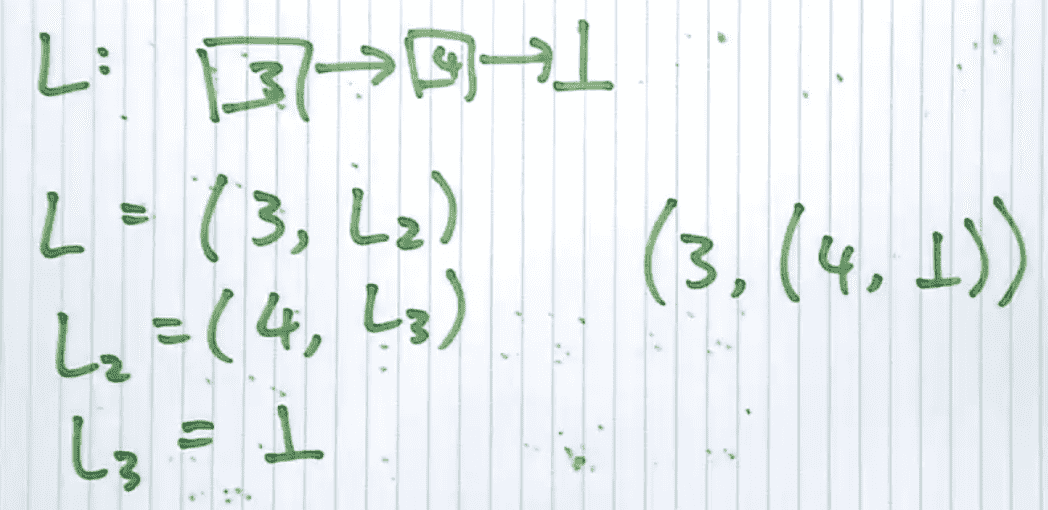 L: 3 → 4 → ⊥
L = (3, L₂)
L₂ = (4, L₃)
L₃ = ⊥
(3, (4, ⊥))